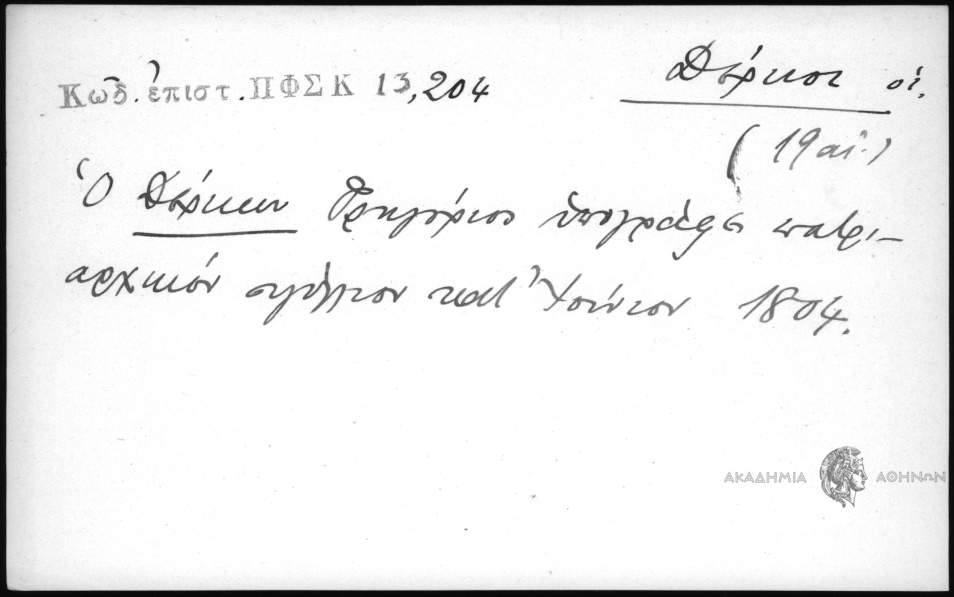 Κωδ. ἐπιστ. ΠΦΣΚ 13,204
Δέρκοι οἱ.
(19 αἰ.)
Ὁ Δέρκων Γρηγόριος ὑπογράφει πατρι-
αρχικόν σιγίλλιον κατ' Ἰούνιον 1804.
ΑΚΑΔΗΜΙΑ ΑΘΗΝΩΝ